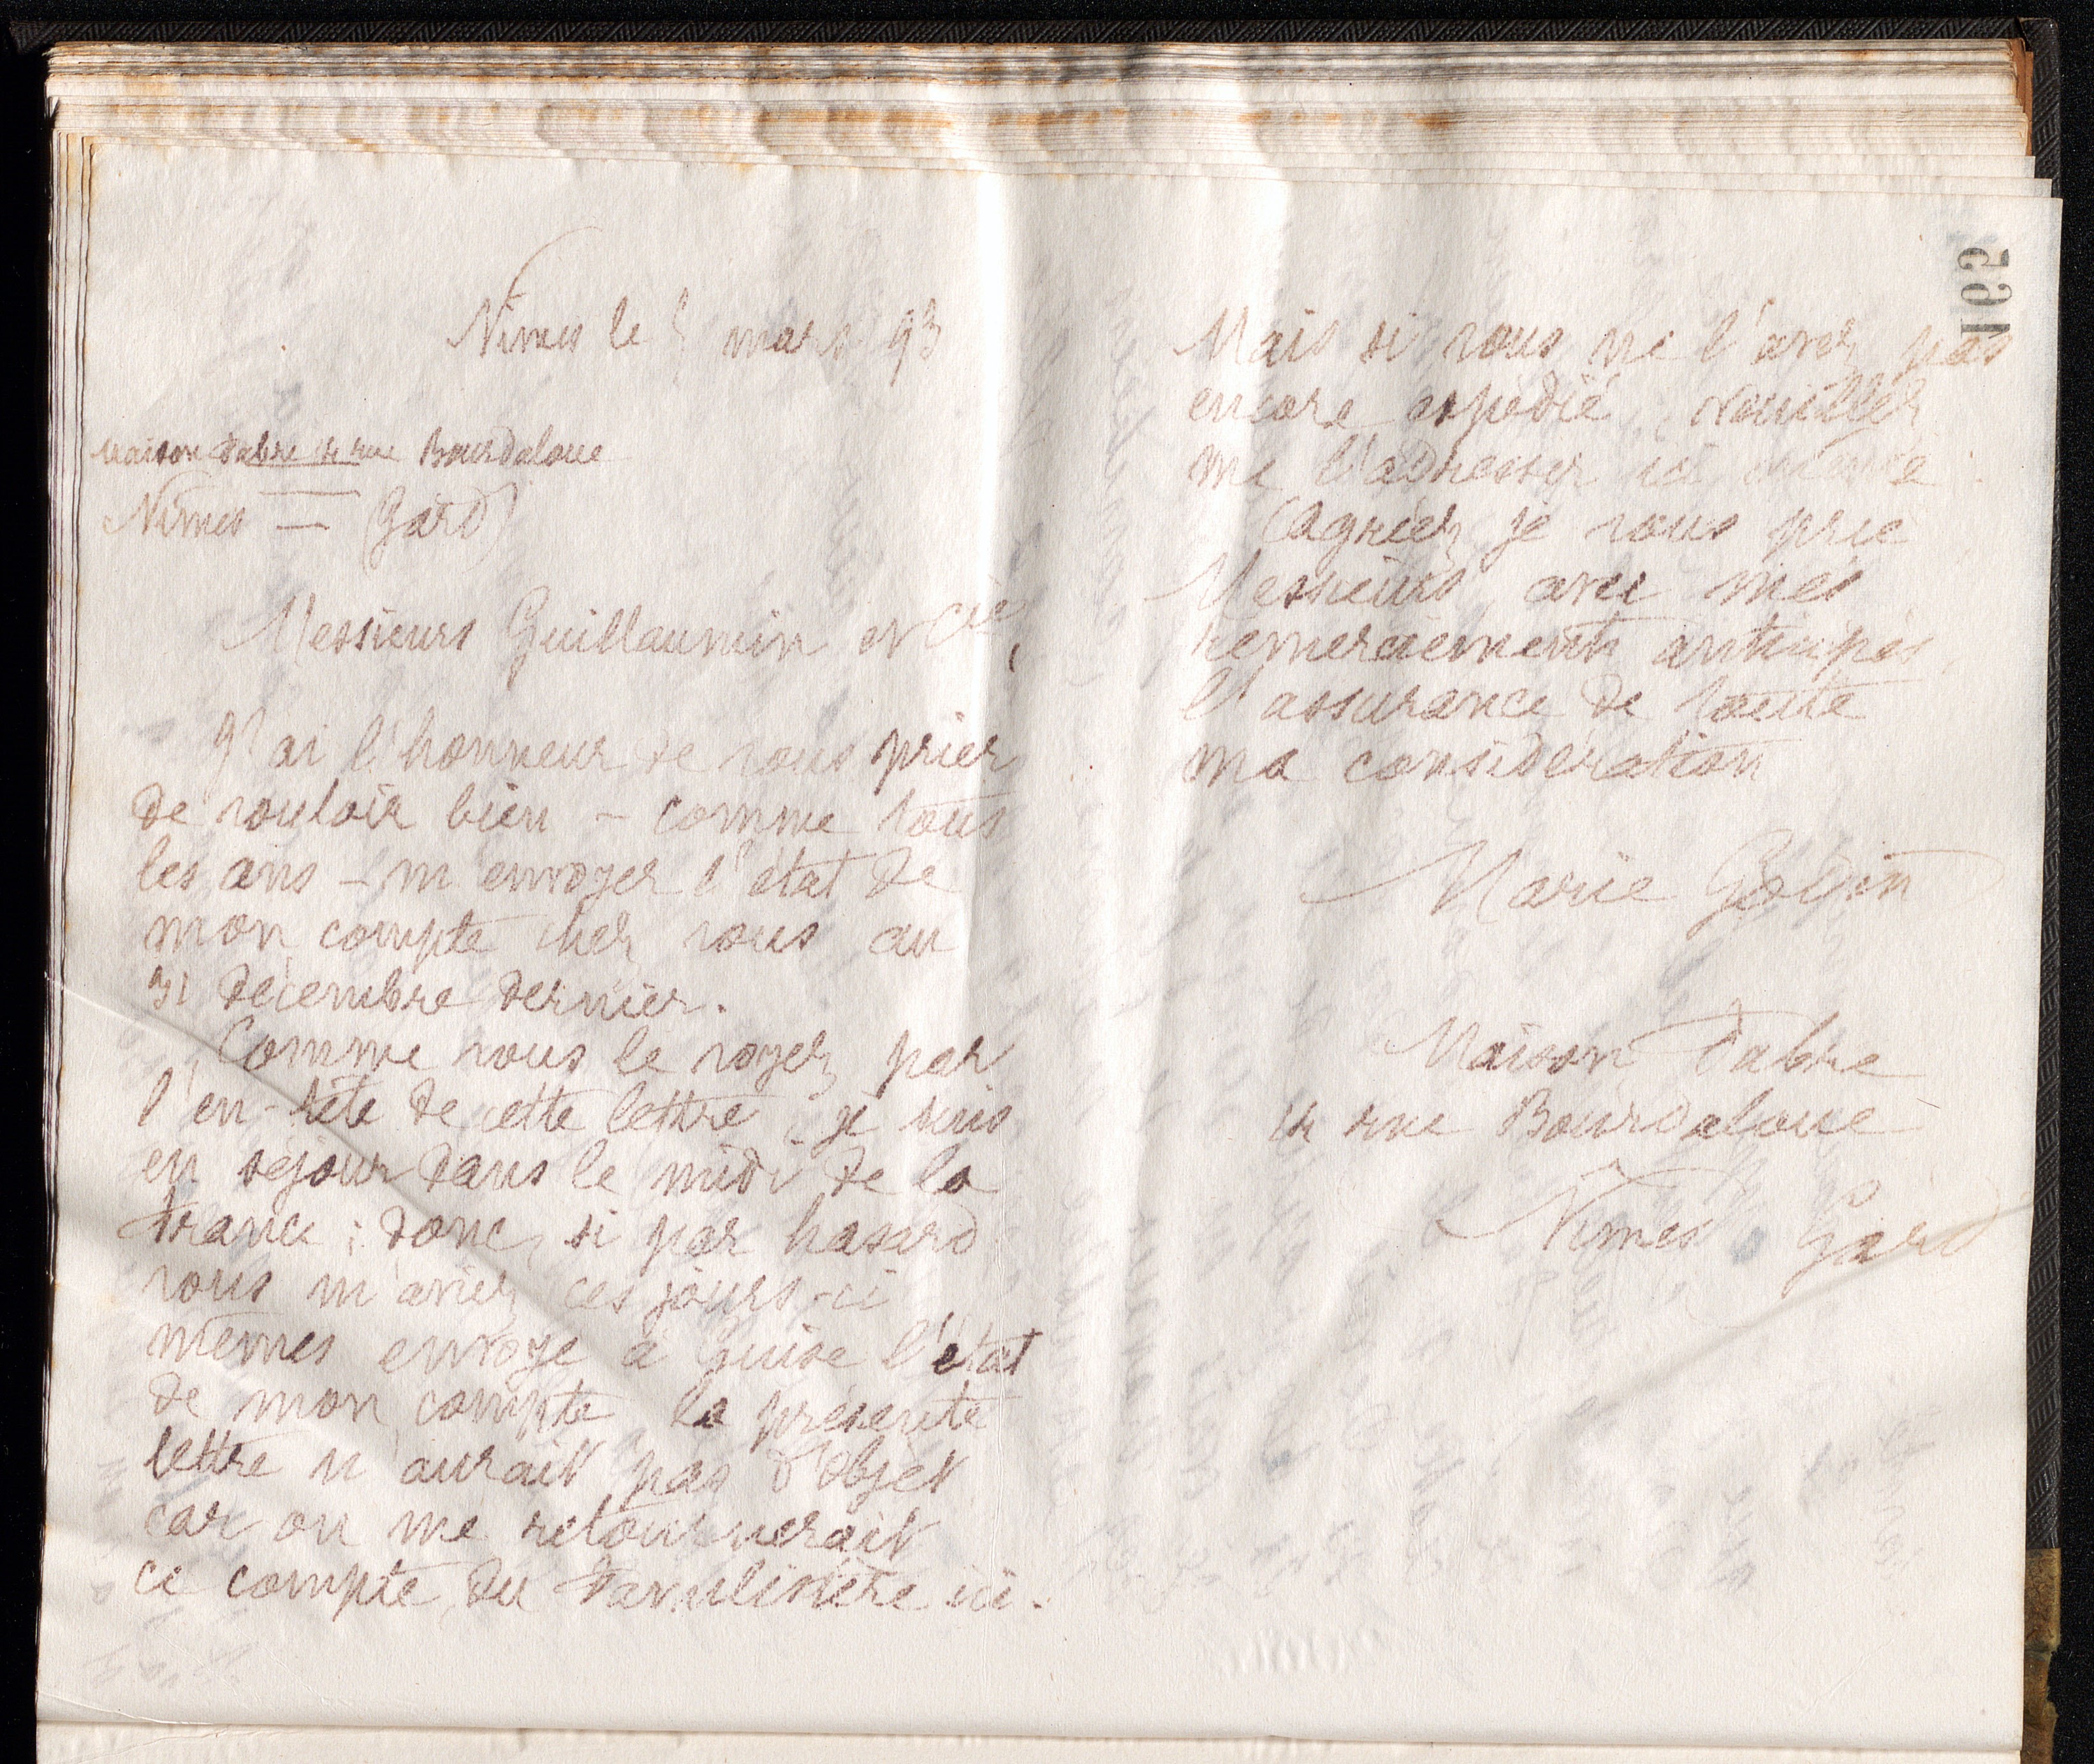 Nîmes le 5 mars 93
Maison Fabre 14 rue Bourdaloue
Nîmes — (Gard)
Messieurs Guillaumin et Cie,
J'ai l'honneur de vous prier
de vouloir bien - comme tous
les ans - m'envoyer l'état de
mon compte chez vous au
31 décembre dernier.
Comme vous le voyez par
l'en-tête de cette lettre, je suis
en séjour dans le midi de la
France ; donc, si par hasard
vous m'aviez ces jours-ci
mêmes envoyé à Guise l'état
de mon compte la présente
lettre n'aurait pas d'objet
car on me retournerait
ce compte du Familistère ici.
561
Mais si vous ne l'avez pas
encore expédié, veuillez
me l'adresser ici même.
Agréez je vous prie
Messieurs, avec mes
remerciements anticipés,
l'assurance de toute
ma considération
Marie Godin
Maison Fabre
14 rue Bourdaloue
Nîmes Gard